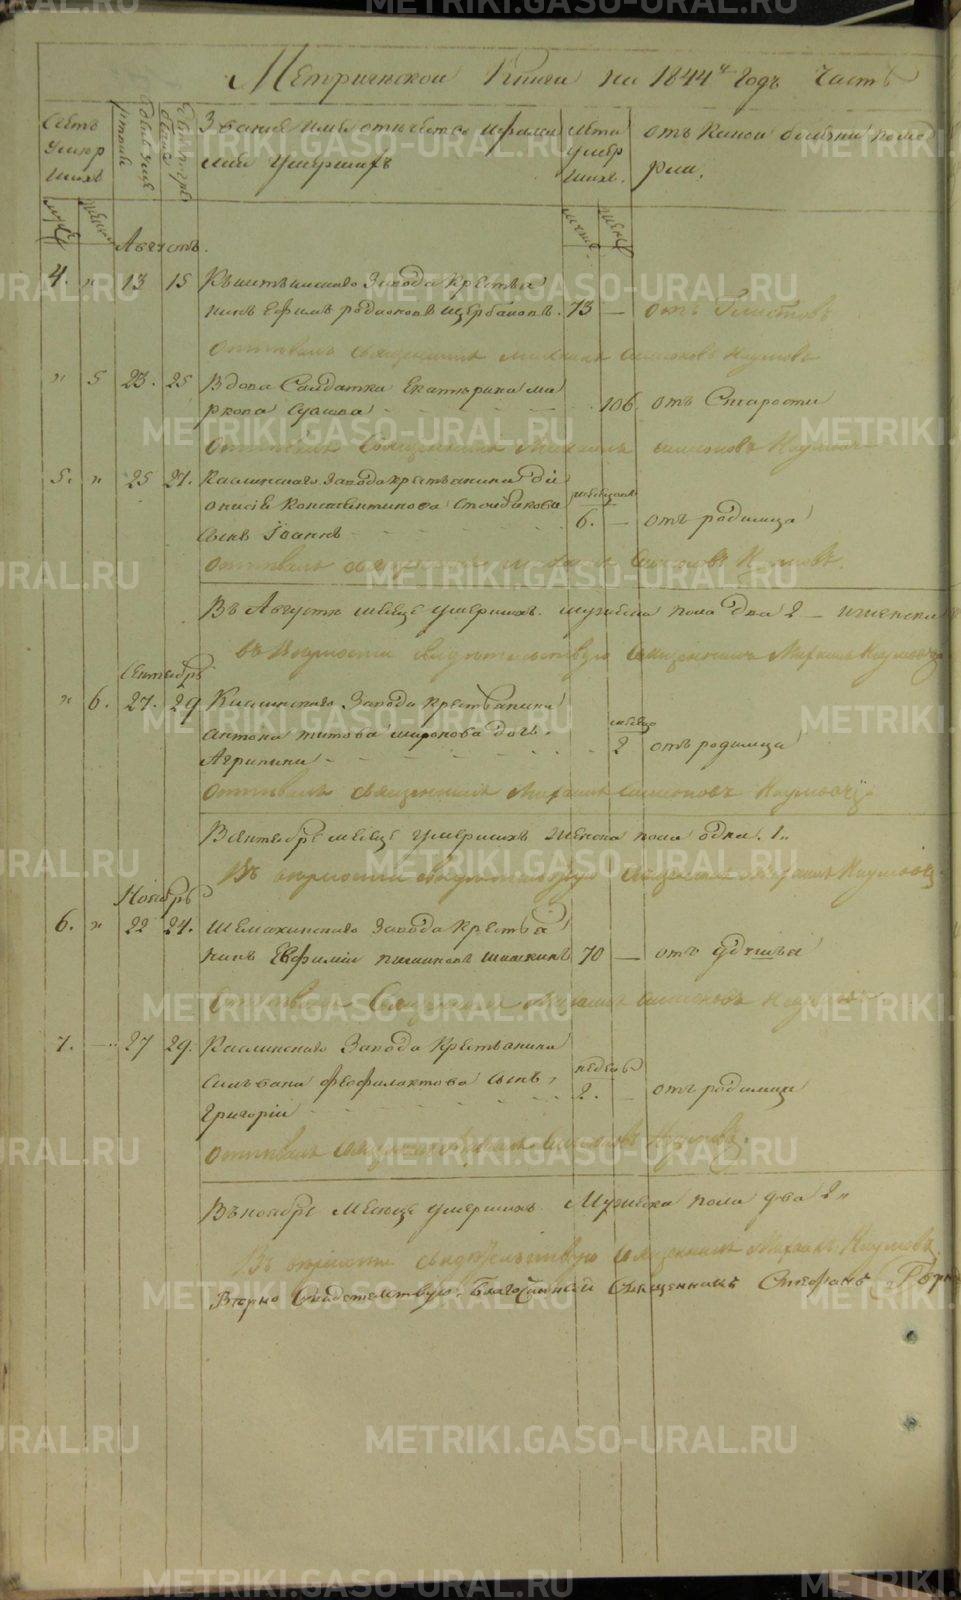 METRIKI.GASO-URAL.RU
Метрической Книги на 1844й Годъ Часть
Счетъ умершихъ
Званiе имя отчество и фамилiе умершихъ
Лета умершихъ
отъ какой болезни померли
Августъ.
4. " 13 15 Кыштымскаго Завода крестья
нинъ Ефимъ родионовъ щербаковъ. 73 — отъ Глистовъ
отпевалъ священникъ михаилъ симеоновъ Наумовъ
" 5 23. 25 Вдова Салдатка Екатерина ма
ркова 106. отъ Старости
Отпевалъ Священникъ Михаилъ симеоновъ Наумовъ
5. " 25 27. Каслинскаго Завода крестьянина Ді
онисія Константинова
сынъ Іоаннъ 6. — отъ родимца
отпевалъ священникъ Симеоновъ Наумовъ.
Въ Августе месеце умершихъ. мужеска пола два 2 — и женска
въ верности свидетельствую священникъ Михаилъ Наумовъ
Сентябрь
" 6. 27. 29 Каслинскаго Завода крестьянина
антона титова миронова дочь,
Агрипина 2 отъ родимца
отпевалъ священникъ Михаилъ симеоновъ Наумовъ
Всентебре месеце умершихъ женска пола одна. 1"
Въ верности свидетельствую священникъ Михаилъ Наумовъ
Ноябрь
6. " 22 24. Шемахинскаго Завода крестья
нинъ Евфимій 70 — отъ
Отпевалъ Священникъ Михаилъ симеоновъ Наумовъ
7. — 27 29. Каслинскаго Завода крестьянина
феофилактова сынъ,
Григорій 2. — отъ родимца
отпевалъ священникъ Михаилъ Симеоновъ Наумовъ.
Въ ноябре месеце умершихъ. Мужеска пола два 2"
Въ верности свидетельствую священникъ Михаилъ Наумовъ.
Верно Свидетельствую. Благочинный Священникъ Стефанъ